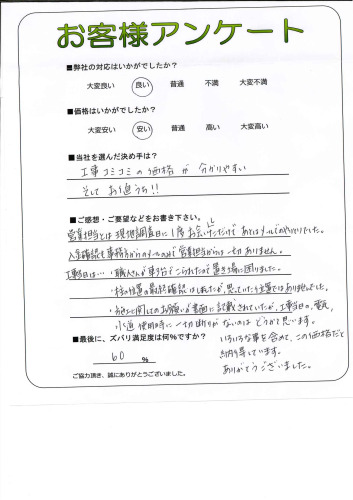 お客様アンケート
■弊社の対応はいかがでしたか?
大変良い 良い 普通 不満 大変不満
■価格はいかがでしたか?
大変安い 安い 普通 高い 大変高い
■当社を選んだ決め手は?
工事コミコミの価格が分かりやすい
そしてお値うち!!
■ご感想・ご要望などをお書き下さい。
営業担当とは現地調査日に1度お会いしただけであとはメールでのやりとりでした。
入金確認も事務方からのメールのみで営業担当からは一切ありません。
工事当日は…・職人さんが車3台でこられたので置き場に困りました。
・柱の位置の最終確認はしましたが、思っていた位置ではありませんでした。
・施工に関してのお願いが書面に記載されていたが、工事当日の、電気、
水道使用時に一切断りがないのはどうかと思います。
いろいろな事を含めて、この価格だと
納得しています。
ありがとうございました。
■最後に、ズバリ満足度は何%ですか?
60 %
ご協力頂き、誠にありがとうございました。